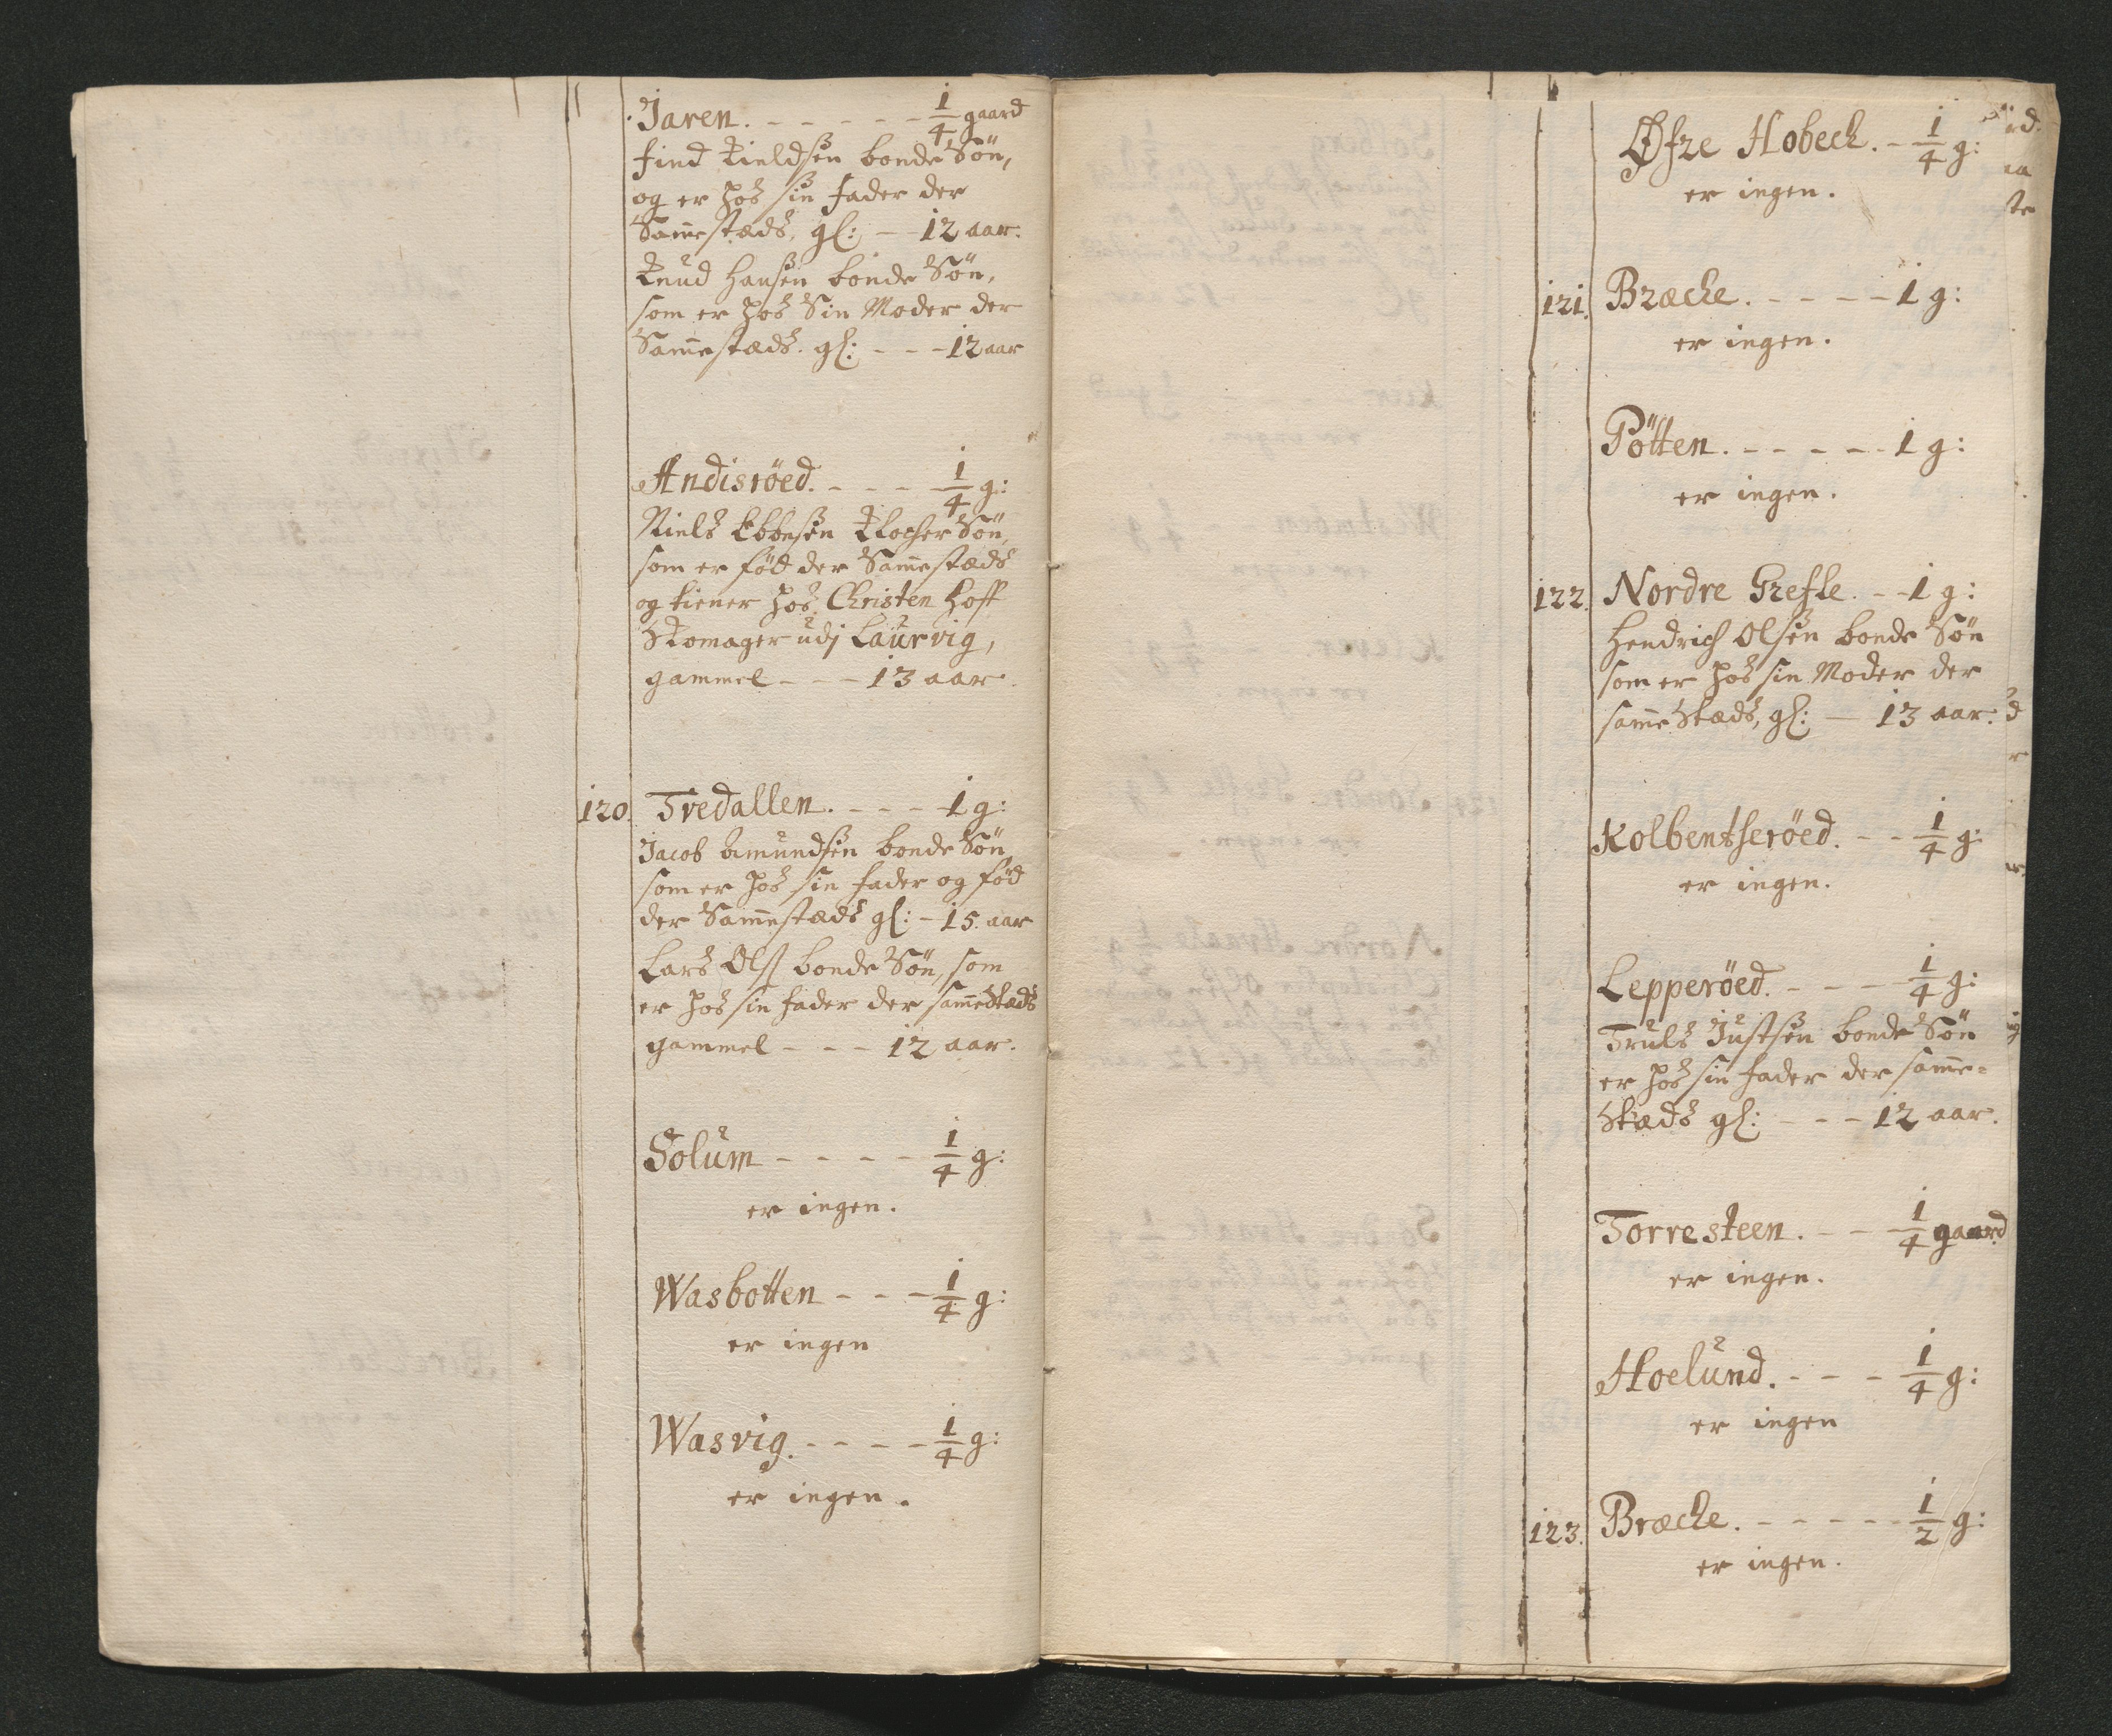 Jaren. - - - - - - 1/4 gaard
find Kieldsen bonde Søn,
og er hos sin fader der
Sam̄estæds, gl: - - 12 aar.
Knud Hansen bonde Søn,
som er hos Sin Moder der
Sam̄estæds. gl: - - - 12 aar
Andisröed. - - - - 1/4 g:
Niels Ebbesen Klocher Søn,
som er föd der Sam̄estæds
og tiener hos Christen Hoff
Skomager udj Laurvig,
gammel - - - 13 aar.
120. Tvedallen. - - - - 1 g:
Jacob Amundsen bonde Søn
som er hos sin fader og föd
der Sam̄estæds gl: - 15. aar
Lars Ols bonde Søn, som
er hos sin fader der sam̄estæds
gammel - - - 12 aar.
Solum - - - - - 1/4 g:
er ingen.
Wasbotten - - - 1/4 g:
er ingen
Wasvig. - - - - - 1/4 g:
er ingen.
Øfre Hobeck. - 1/4 g:
er ingen.
121. Bræcke. - - - - - 1 g:
er ingen.
Pötten. - - - - - 1 g:
er ingen.
122. Nordre Grefle. - - 1 g:
Hendrich Olsen bonde Søn
som er hos sin Moder der
sam̄e Stæds, gl: - 13 aar.
Kolbentseröed. - - 1/4 g:
er ingen.
Lepperöed. - - - - 1/4 g:
Truls Justsen bonde Søn
er hos sin fader der sam̄e-
Stæds gl: - - - 12 aar.
Torresteen. - - 1/4 gaard
er ingen.
Hoelund. - - - - 1/4 g:
er ingen
123. Bræcke. - - - - - - 1/2 g:
er ingen.